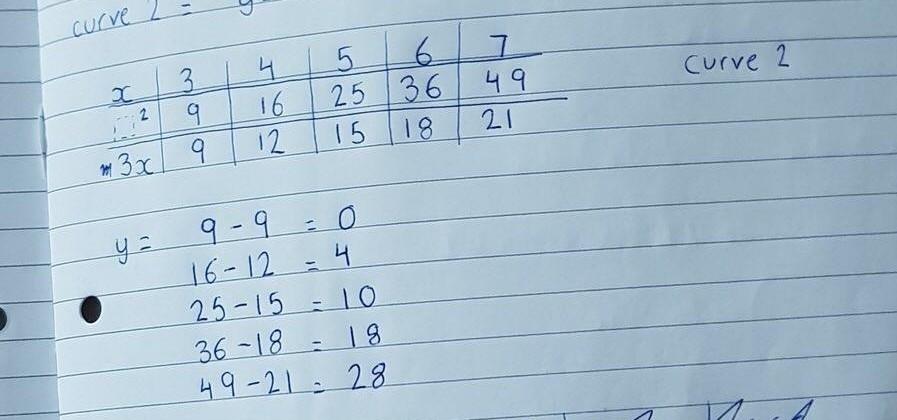 curve 2 = y
x 3 4 5 6 7
□² 9 16 25 36 49
3x 9 12 15 18 21
curve 2
y = 9 - 9 = 0
16 - 12 = 4
25 - 15 = 10
36 - 18 = 18
49 - 21 = 28